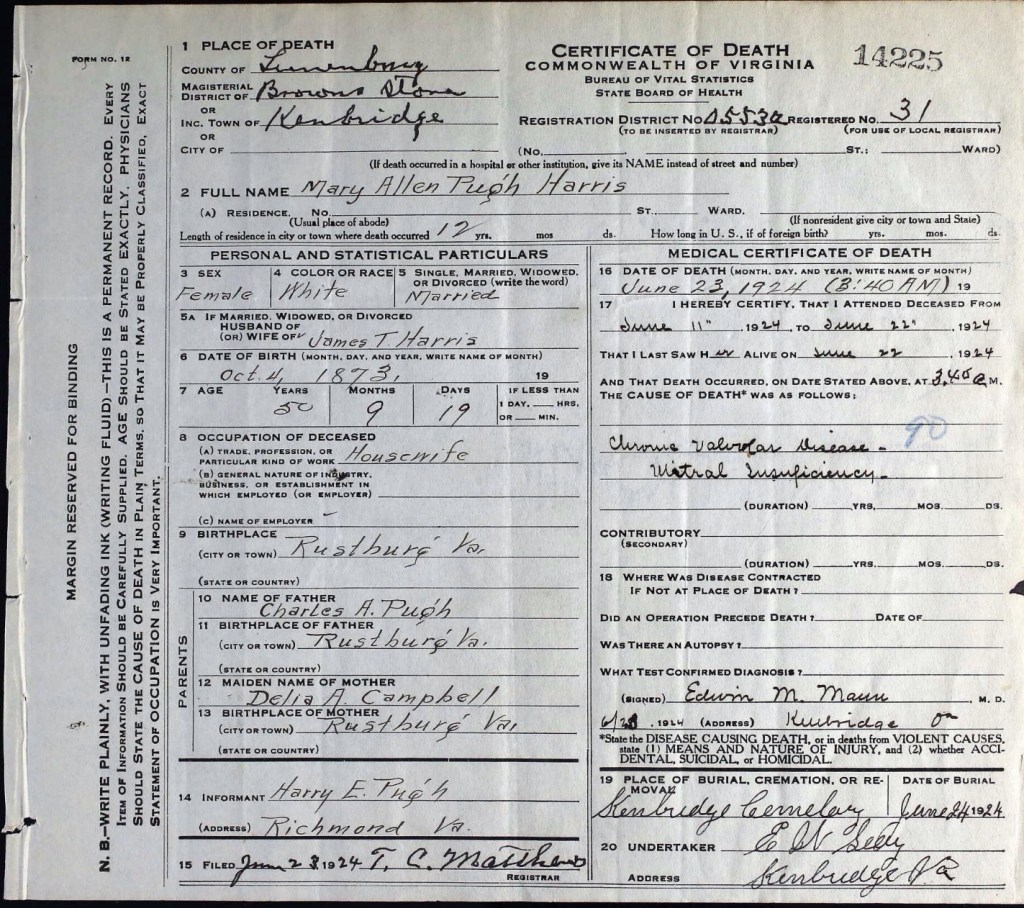 FORM NO. 12
MARGIN RESERVED FOR BINDING
N. B.—WRITE PLAINLY, WITH UNFADING INK (WRITING FLUID)—THIS IS A PERMANENT RECORD. EVERY
ITEM OF INFORMATION SHOULD BE CAREFULLY SUPPLIED. AGE SHOULD BE STATED EXACTLY. PHYSICIANS
SHOULD STATE THE CAUSE OF DEATH IN PLAIN TERMS, SO THAT IT MAY BE PROPERLY CLASSIFIED. EXACT
STATEMENT OF OCCUPATION IS VERY IMPORTANT.
1 PLACE OF DEATH
COUNTY OF Lunenburg
MAGISTERIAL
DISTRICT OF Browns Store
OR
INC. TOWN OF Kenbridge
OR
CITY OF
CERTIFICATE OF DEATH
COMMONWEALTH OF VIRGINIA
BUREAU OF VITAL STATISTICS
STATE BOARD OF HEALTH
14225
REGISTRATION DISTRICT NO. 0553a REGISTERED NO. 31
(TO BE INSERTED BY REGISTRAR) (FOR USE OF LOCAL REGISTRAR)
(NO. ST.; WARD)
(If death occurred in a hospital or other institution, give its NAME instead of street and number)
2 FULL NAME Mary Allen Pugh Harris
(A) RESIDENCE, NO. ST. WARD.
(Usual place of abode) (If nonresident give city or town and State)
Length of residence in city or town where death occurred 12 yrs. mos ds. How long in U. S., if of foreign birth? yrs. mos. ds.
PERSONAL AND STATISTICAL PARTICULARS
3 SEX
Female
4 COLOR OR RACE
White
5 SINGLE, MARRIED, WIDOWED,
OR DIVORCED (write the word)
Married
5A IF MARRIED, WIDOWED, OR DIVORCED
HUSBAND OF
(OR) WIFE OF James T. Harris
6 DATE OF BIRTH (MONTH, DAY, AND YEAR, WRITE NAME OF MONTH)
Oct. 4, 1873, 19
7 AGE YEARS MONTHS DAYS IF LESS THAN
50 9 19 1 DAY, HRS.
OR MIN.
8 OCCUPATION OF DECEASED
(A) TRADE, PROFESSION, OR
PARTICULAR KIND OF WORK Housewife
(B) GENERAL NATURE OF INDUSTRY,
BUSINESS, OR ESTABLISHMENT IN
WHICH EMPLOYED (OR EMPLOYER)
(C) NAME OF EMPLOYER –
9 BIRTHPLACE
(CITY OR TOWN) Rustburg Va.
(STATE OR COUNTRY)
PARENTS
10 NAME OF FATHER
Charles A. Pugh
11 BIRTHPLACE OF FATHER
(CITY OR TOWN) Rustburg Va.
(STATE OR COUNTRY)
12 MAIDEN NAME OF MOTHER
Delia A. Campbell
13 BIRTHPLACE OF MOTHER
(CITY OR TOWN) Rustburg Va,
(STATE OR COUNTRY)
14 INFORMANT Harry E. Pugh
(ADDRESS) Richmond Va.
15 FILED June 23 1924 T. C. Matthews
REGISTRAR
MEDICAL CERTIFICATE OF DEATH
16 DATE OF DEATH (MONTH, DAY, AND YEAR, WRITE NAME OF MONTH)
June 23, 1924 (3:40 AM) 19
17 I HEREBY CERTIFY, THAT I ATTENDED DECEASED FROM
June 11" , 1924, TO June 22" , 1924
THAT I LAST SAW HER ALIVE ON June 22 , 1924
AND THAT DEATH OCCURRED, ON DATE STATED ABOVE, AT 3.40 a M.
THE CAUSE OF DEATH* WAS AS FOLLOWS:
90
Chronic Valvolar Disease –
Mitral Insuficiency –
(DURATION) YRS. MOS. DS.
CONTRIBUTORY
(SECONDARY)
(DURATION) YRS. MOS. DS.
18 WHERE WAS DISEASE CONTRACTED
IF NOT AT PLACE OF DEATH?
DID AN OPERATION PRECEDE DEATH? DATE OF
WAS THERE AN AUTOPSY?
WHAT TEST CONFIRMED DIAGNOSIS?
(SIGNED) Edwin M. Mann M. D.
, 1924 (ADDRESS) Kenbridge Va
*State the DISEASE CAUSING DEATH, or in deaths from VIOLENT CAUSES,
state (1) MEANS AND NATURE OF INJURY, and (2) whether ACCI-
DENTAL, SUICIDAL, or HOMICIDAL.
19 PLACE OF BURIAL, CREMATION, OR RE-
MOVAL
Kenbridge Cemetary
DATE OF BURIAL
June 24 1924
20 UNDERTAKER E W
ADDRESS Kenbridge Va